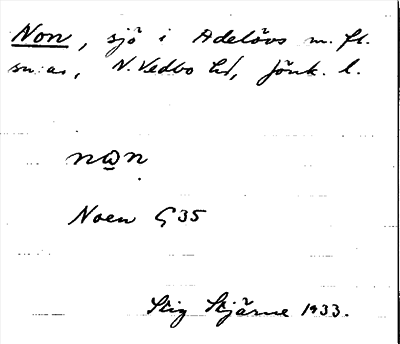 Non, sjö i Adelövs m. fl.
sn:ar, N. Vedbo hd, Jönk. l.
nωn
Noen G 35
Stig Stjärne 1933.